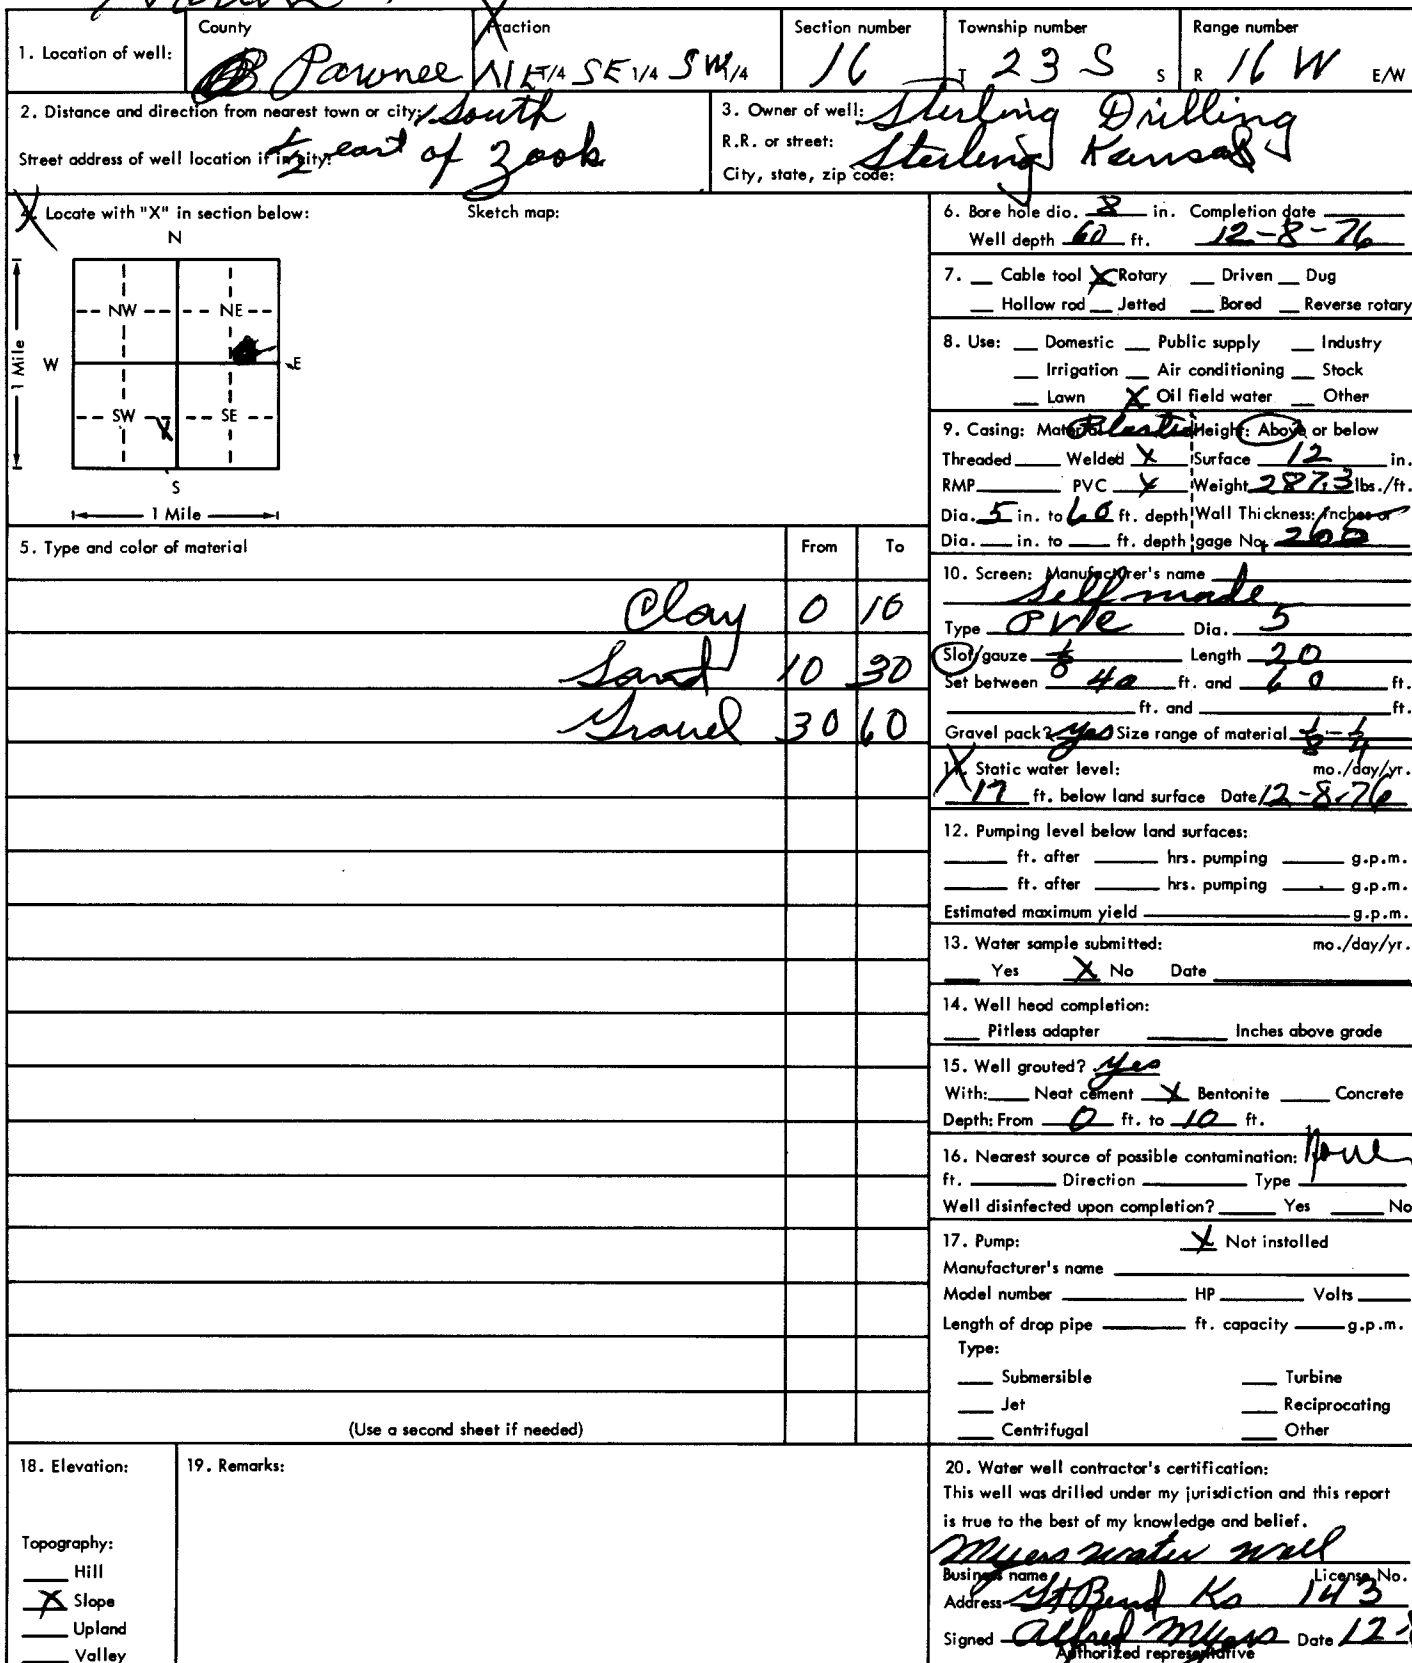 County Fraction Section number Township number Range number
1. Location of well: Pawnee NE 1/4 SE 1/4 SW 1/4 16 T 23 S S R 16 W E/W
2. Distance and direction from nearest town or city: 1 South
Street address of well location if in city: 1/2 east of Zook
3. Owner of well: Sterling Drilling
R.R. or street: Sterling Kansas
City, state, zip code:
4. Locate with "X" in section below: Sketch map:
N
NW NE
W E
SW X SE
S
1 Mile
1 Mile
5. Type and color of material From To
Clay 0 10
Sand 10 30
Gravel 30 60
(Use a second sheet if needed)
6. Bore hole dia. 8 in. Completion date
Well depth 60 ft. 12-8-76
7. Cable tool X Rotary Driven Dug
Hollow rod Jetted Bored Reverse rotary
8. Use: Domestic Public supply Industry
Irrigation Air conditioning Stock
Lawn X Oil field water Other
9. Casing: Material Plastic Height: Above or below
Threaded Welded X Surface 12 in.
RMP PVC X Weight 287.3 lbs./ft.
Dia. 5 in. to 60 ft. depth Wall Thickness: Inches or
Dia. in. to ft. depth gage No.
10. Screen: Manufacturer's name
Self made
Type PVC Dia. 5
Slot/gauze 1/8 Length 20
Set between 40 ft. and 60 ft.
ft. and ft.
Gravel pack? yes Size range of material 1/8-1/4
11. Static water level: mo./day/yr.
17 ft. below land surface Date 12-8-76
12. Pumping level below land surfaces:
ft. after hrs. pumping g.p.m.
ft. after hrs. pumping g.p.m.
Estimated maximum yield g.p.m.
13. Water sample submitted: mo./day/yr.
Yes X No Date
14. Well head completion:
Pitless adapter Inches above grade
15. Well grouted? yes
With: Neat cement X Bentonite Concrete
Depth: From 0 ft. to 10 ft.
16. Nearest source of possible contamination: None
ft. Direction Type
Well disinfected upon completion? Yes No
17. Pump: X Not installed
Manufacturer's name
Model number HP Volts
Length of drop pipe ft. capacity g.p.m.
Type:
Submersible Turbine
Jet Reciprocating
Centrifugal Other
18. Elevation:
Topography:
Hill
X Slope
Upland
Valley
19. Remarks:
20. Water well contractor's certification:
This well was drilled under my jurisdiction and this report
is true to the best of my knowledge and belief.
Myers water well
Business name License No.
Address Gt Bend Ks 143
Signed Alfred Myers Date 12-
Authorized representative